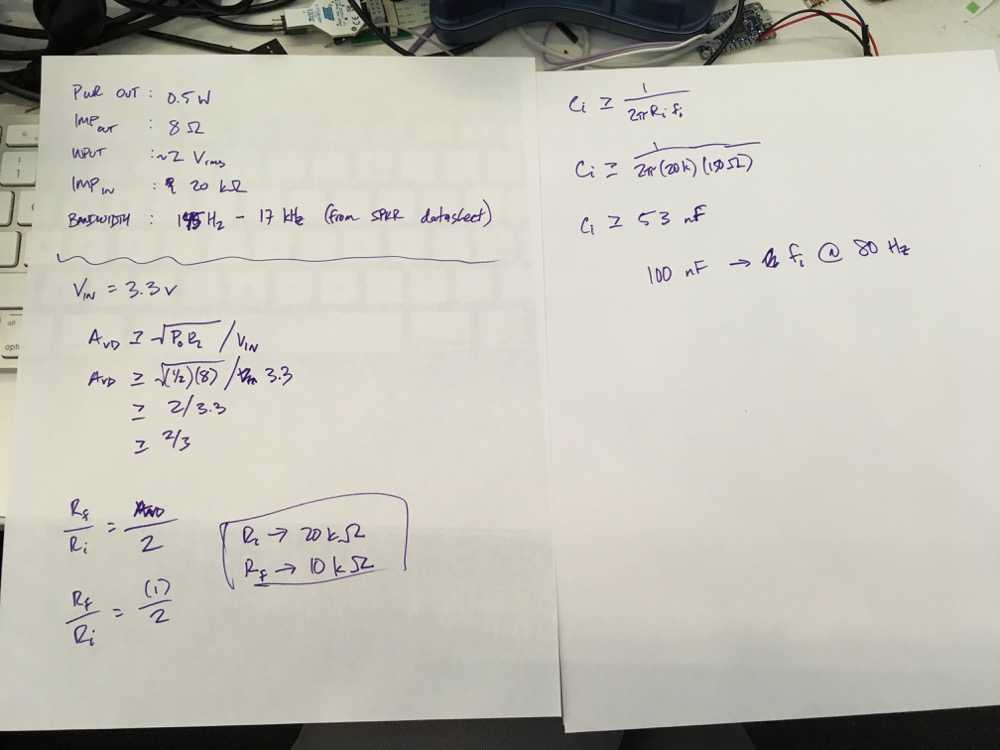 PWR OUT : 0.5 W
IMP OUT : 8 Ω
INPUT : ~2 Vrms
IMP IN : 20 kΩ
BANDWIDTH : Hz - 17 kHz (from SPKR datasheet)
VIN = 3.3 v
AVD ≥ √PoRL / VIN
AVD ≥ √(1/2)(8) / 3.3
≥ 2/3.3
≥ 2/3
Rf/Ri = AVD/2
Rf/Ri = (1)/2
Ri → 20 kΩ
Rf → 10 kΩ
Ci ≥ 1/2πRi fi
Ci ≥ 1/2π(20k)(150Ω)
Ci ≥ 53 nF
100 nF → fi @ 80 Hz